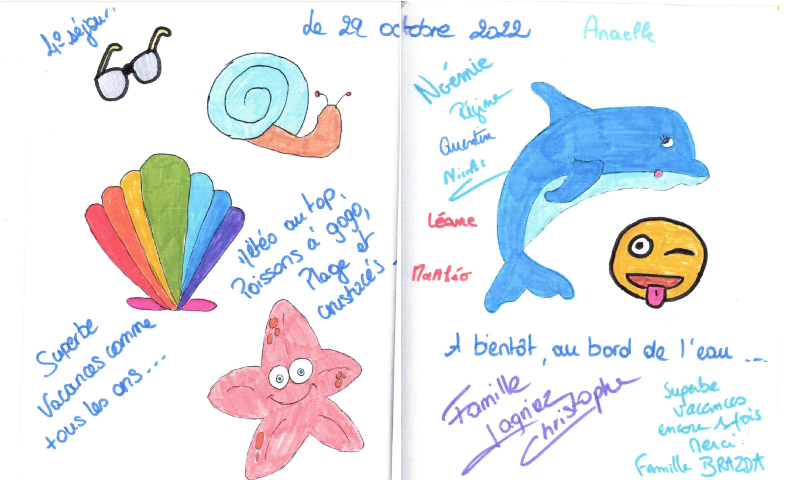 4e séjour.
Le 29 octobre 2022
Météo au top,
Poissons à gogo,
Plage et
crustacés.
Superbe
Vacances comme
tous les ans...
Anaelle
Noémie
Régine
Quentin
Nicolas
Léane
Mantéo
A bientôt, au bord de l'eau ...
Famille
Lagniez
Christophe
Superbe
vacances
encore 1 fois
Merci
Famille BRAZDA